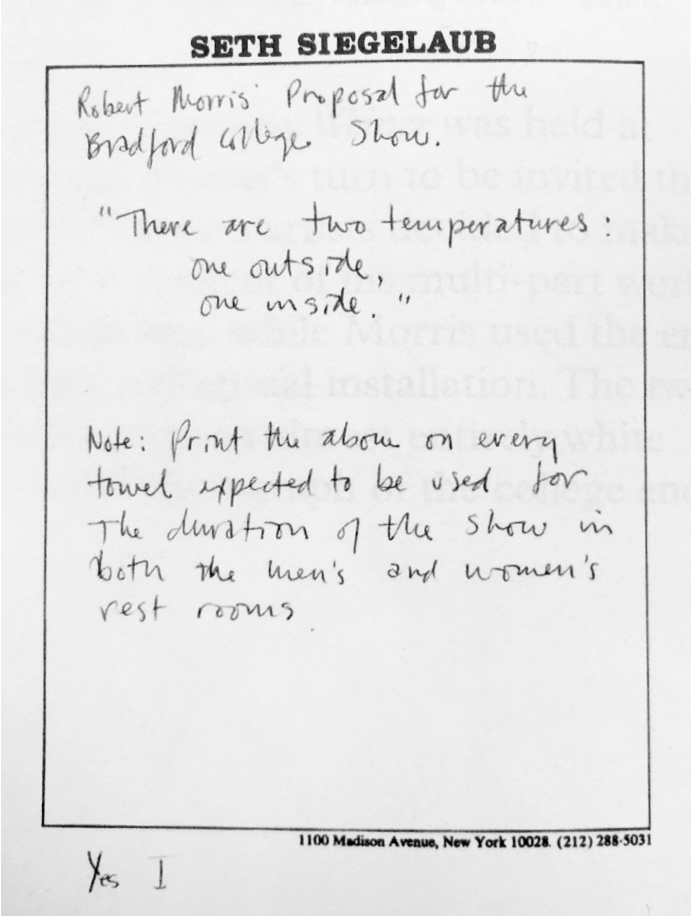 SETH SIEGELAUB
Robert Morris' Proposal for the
Bradford College Show.
"There are two temperatures:
one outside,
one inside."
Note: Print the above on every
towel expected to be used for
The duration of the show in
both the men's and women's
rest rooms
1100 Madison Avenue, New York 10028. (212) 288-5031
Yes I